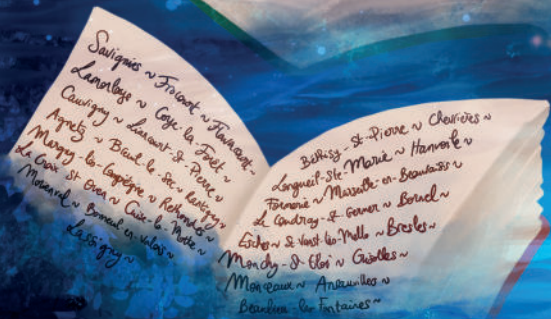 Savignies ~ Frocourt ~ Fleurines ~
Lamorlaye ~ Coye-la-Forêt ~
Cauvigny ~ Liancourt-St-Pierre ~
Agnetz ~ Breuil-le-Sec ~ Rantigny ~
Margny-lès-Compiègne ~ Rethondes ~
La Croix St Ouen ~ Cuise-la-Motte ~
Morienval ~ Bonneuil-en-Valois ~
Lassigny ~
Béthisy-St-Pierre ~ Chevrières ~
Longueil-Ste-Marie ~ Hanvoile ~
Formerie ~ Marseille-en-Beauvaisis ~
Le Coudray-St-Germer ~ Bornel ~
Esches ~ St-Vaast-lès-Mello ~ Bresles ~
Monchy-St-Eloi ~ Guiscard ~
Monceaux ~ Ansauvillers ~
Beaulieu-les-Fontaines ~